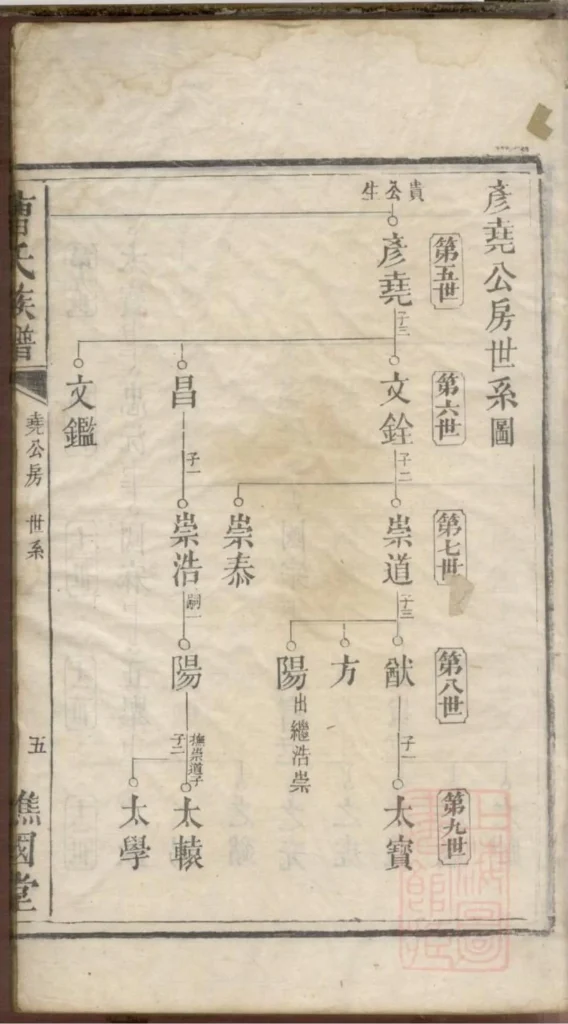 彥堯公房世系圖
第五世
第六世
第七世
第八世
第九世
貴公生
彥堯
子三
文銓
子二
崇道
子三
猷
子一
太寶
方
陽
出繼浩崇
崇泰
昌
子一
崇浩
嗣一
陽
撫崇道子
子二
太轅
太學
文鑑
曹氏族譜
堯公房 世系
五
譙國堂